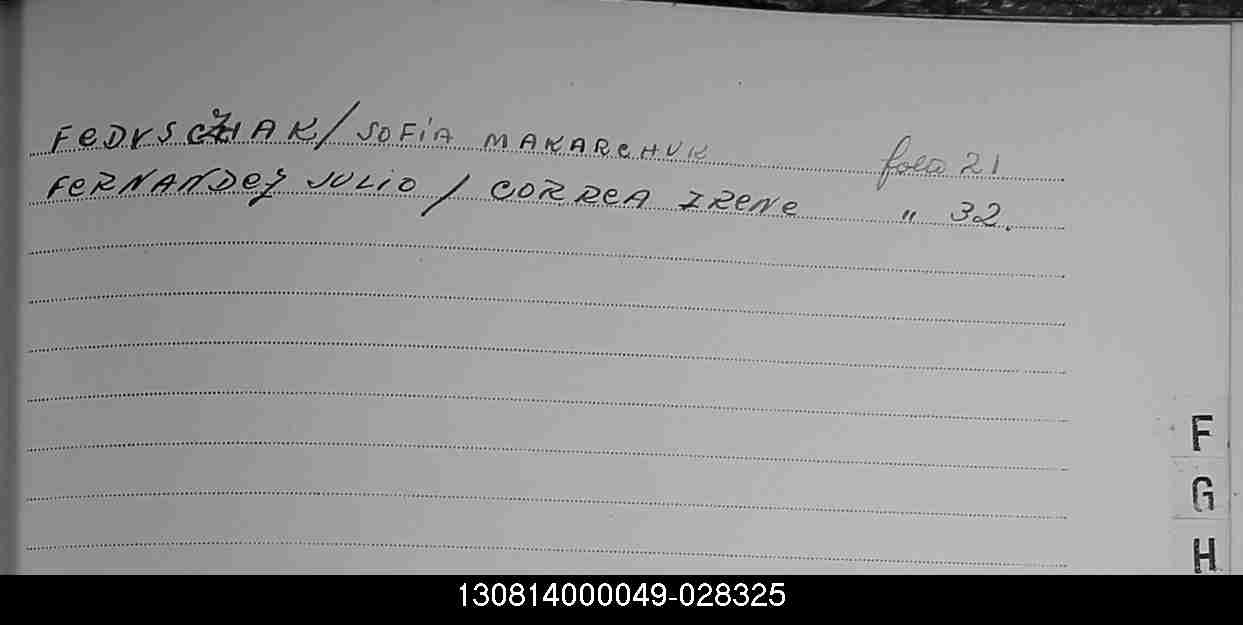 FEDYSCZHAK / SOFIA MAKARCHUK folio 21
FERNANDEZ JULIO / CORREA IRENE " 32.
F
G
H
130814000049-028325